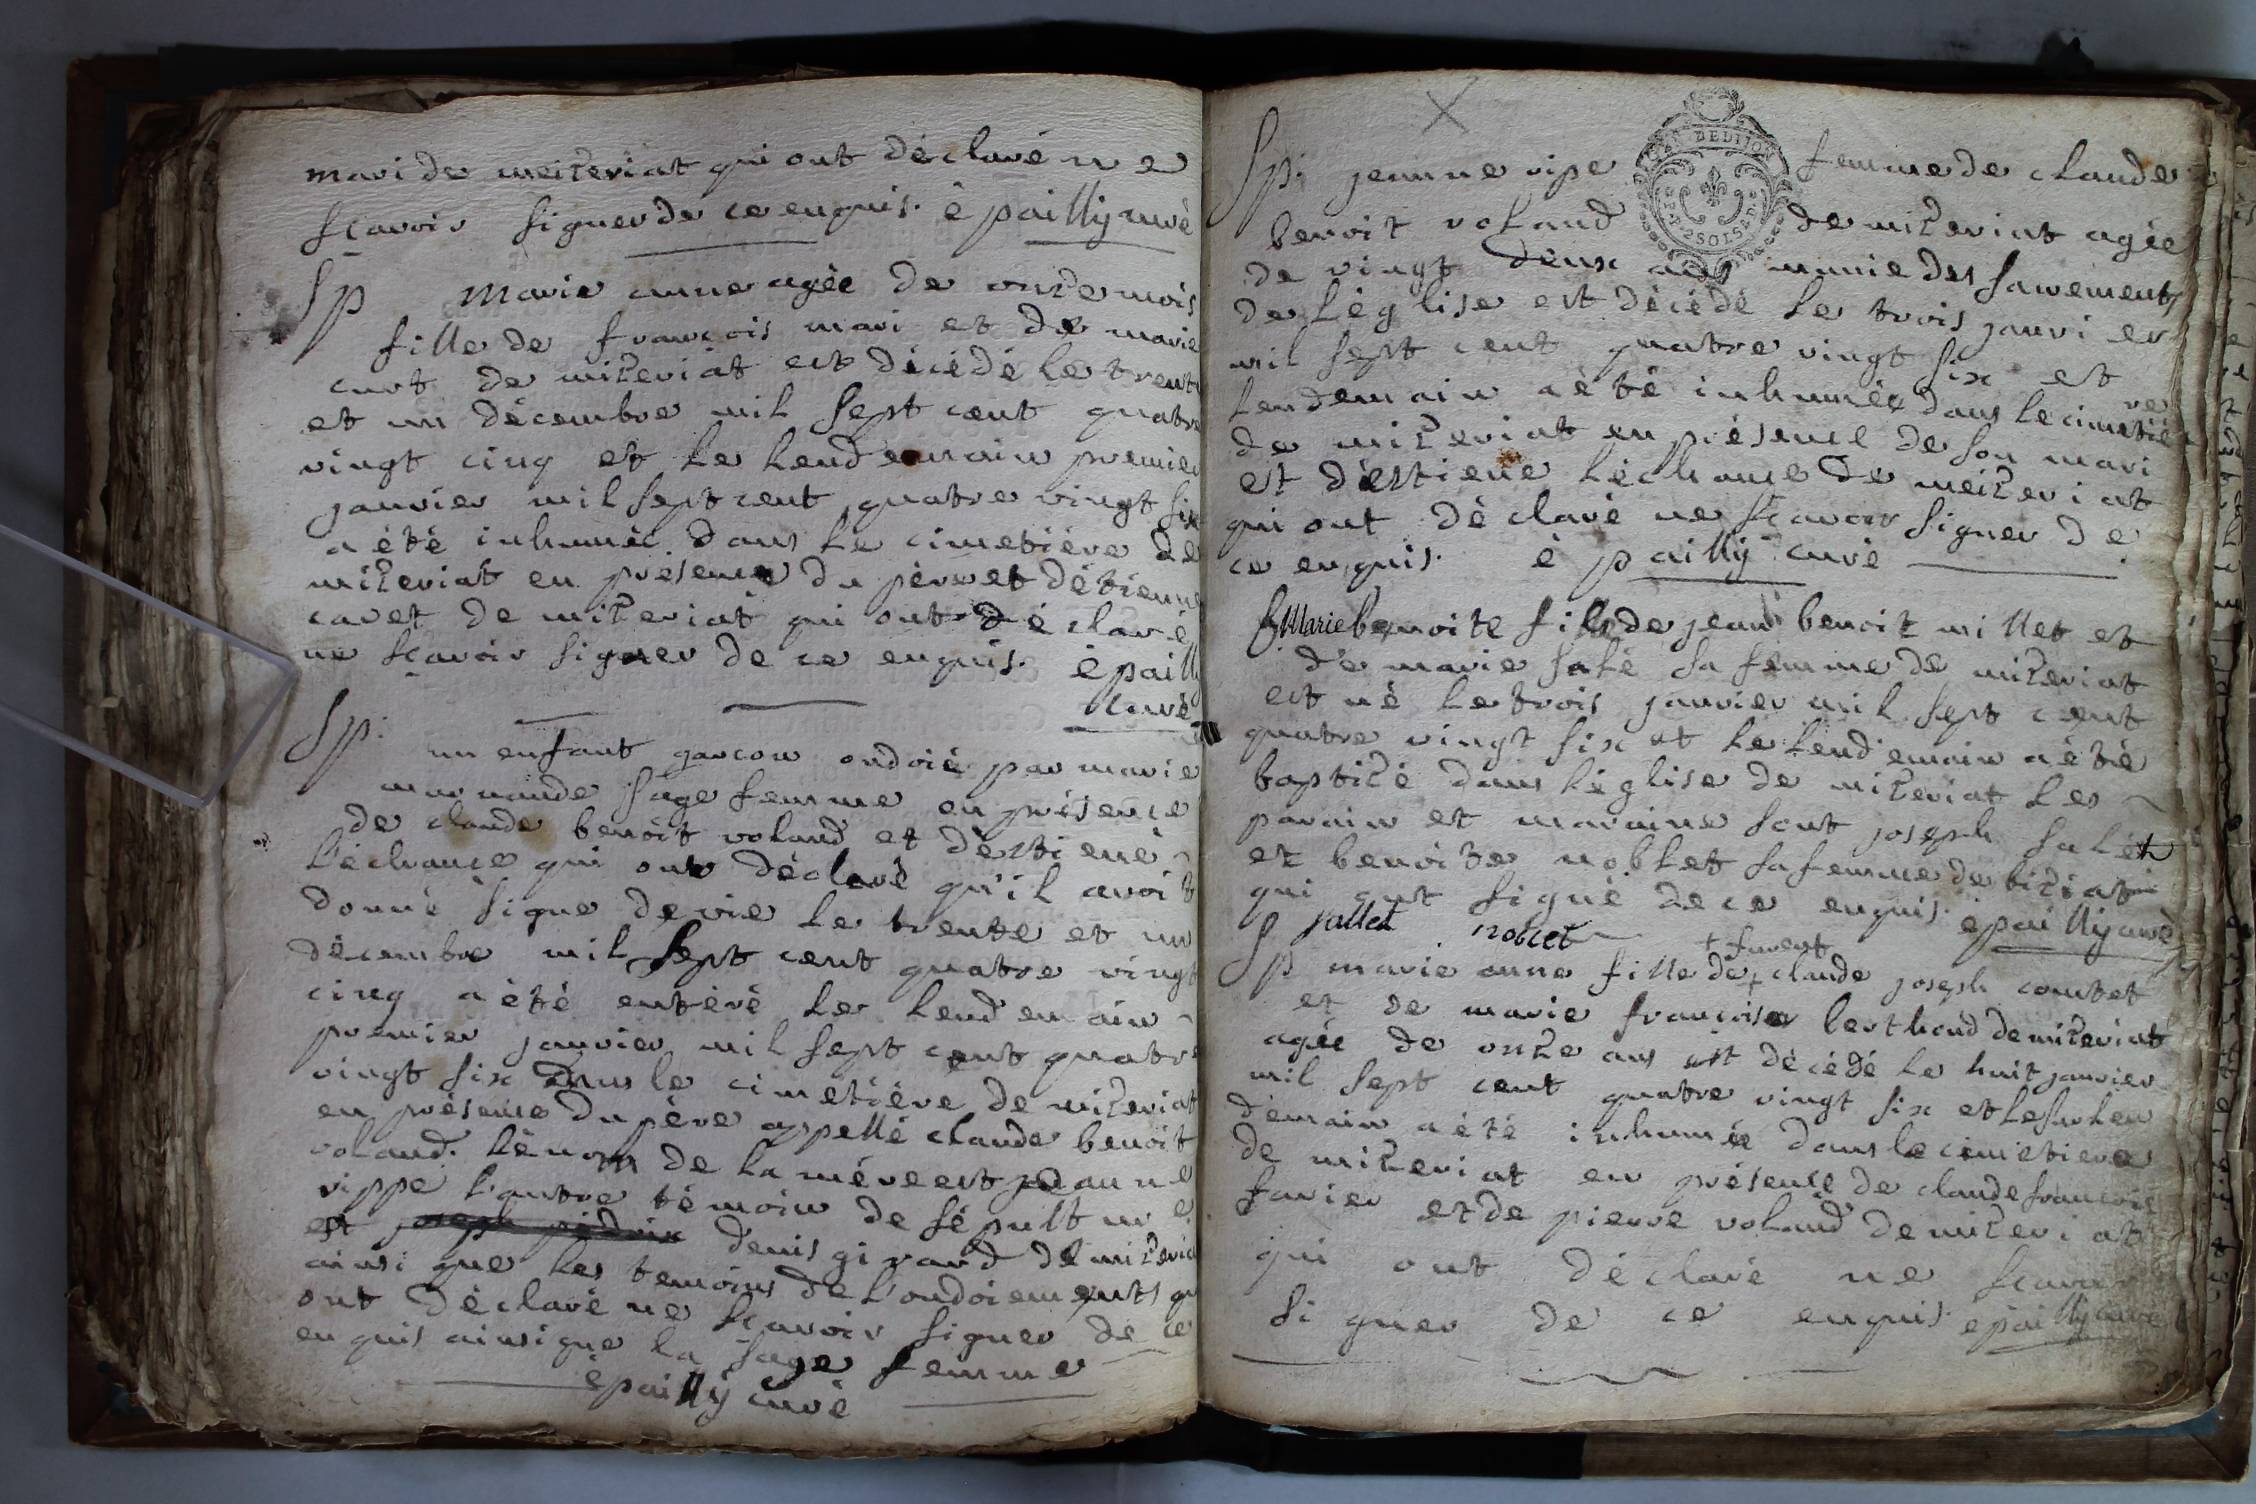 mari de meizeriat qui ont déclaré ne
sçavoir signer de ce enquis. é pailly curé
Sp marie anne agée de onze mois
fille de francois mari et de marie
curt de mizeriat est décédé le trente
et un décembre mil sept cent quatre
vingt cinq et le lendemain premier
janvier mil sept cent quatre vingt six
a été inhumée dans le cimetiére de
mizeriat en présence du père et détienne
cavet de mizeriat qui ont déclaré
ne sçavoir signer de ce enquis. é pailly
curé
Sp. un enfant garcon ondoié par marie
sage femme en présence
de claude benoit voland et déstiene
léchance qui ont déclaré qu'il avoit
donné signe de vie le trente et un
décembre mil sept cent quatre vingt
cinq a été entéré le lendemain
premier janvier mil sept cent quatre
vingt six dans le cimetiére de mizeriat
en présence du père appellé claude benoit
voland. le nom de la mére est jeanne
rippe l'autre témoin de sépulture
est denis girard de mizeriat
ainsi que les temoins de l'ondoiements qui
ont déclaré ne sçavoir signer de ce
enquis ainsi que la sage femme
é pailly curé
DE DIJON
2 SOLS
Sp. jeanne ripe femme de claude
benoit voland de mizeriat agée
de vingt deux ans munie des sacrements
de léglise est décédé le trois janvier
mil sept cent quatre vingt six et
lendemain a été inhumée dans le cimetiére
de mizeriat en présence de son mari
et déstiene léchance de meizeriat
qui ont déclaré ne sçavoir signer de
ce enquis. é pailly curé
Marie benoite fils de jean benoit millet et
de marie salé sa femme de mizeriat
est né le trois janvier mil sept cent
quatre vingt six et le lendemain a été
baptizé dans léglise de mizeriat les
parain et maraine sont joseph salét
et benoite noblet sa femme de biziat
qui ont signé de ce enquis. é pailly curé
sallet noblet
+ furent
Sp marie anne fille de + claude joseph comtet
et de marie francoise berthoud de mizeriat
agée de onze ans est décédé le huit janvier
mil sept cent quatre vingt six et le surlen
demain a été inhumée dans le cimetiere
de mizeriat en présence de claude francois
favier et de pierre voland de mizeriat
qui ont déclaré ne sçavoir
signer de ce enquis. é pailly curé